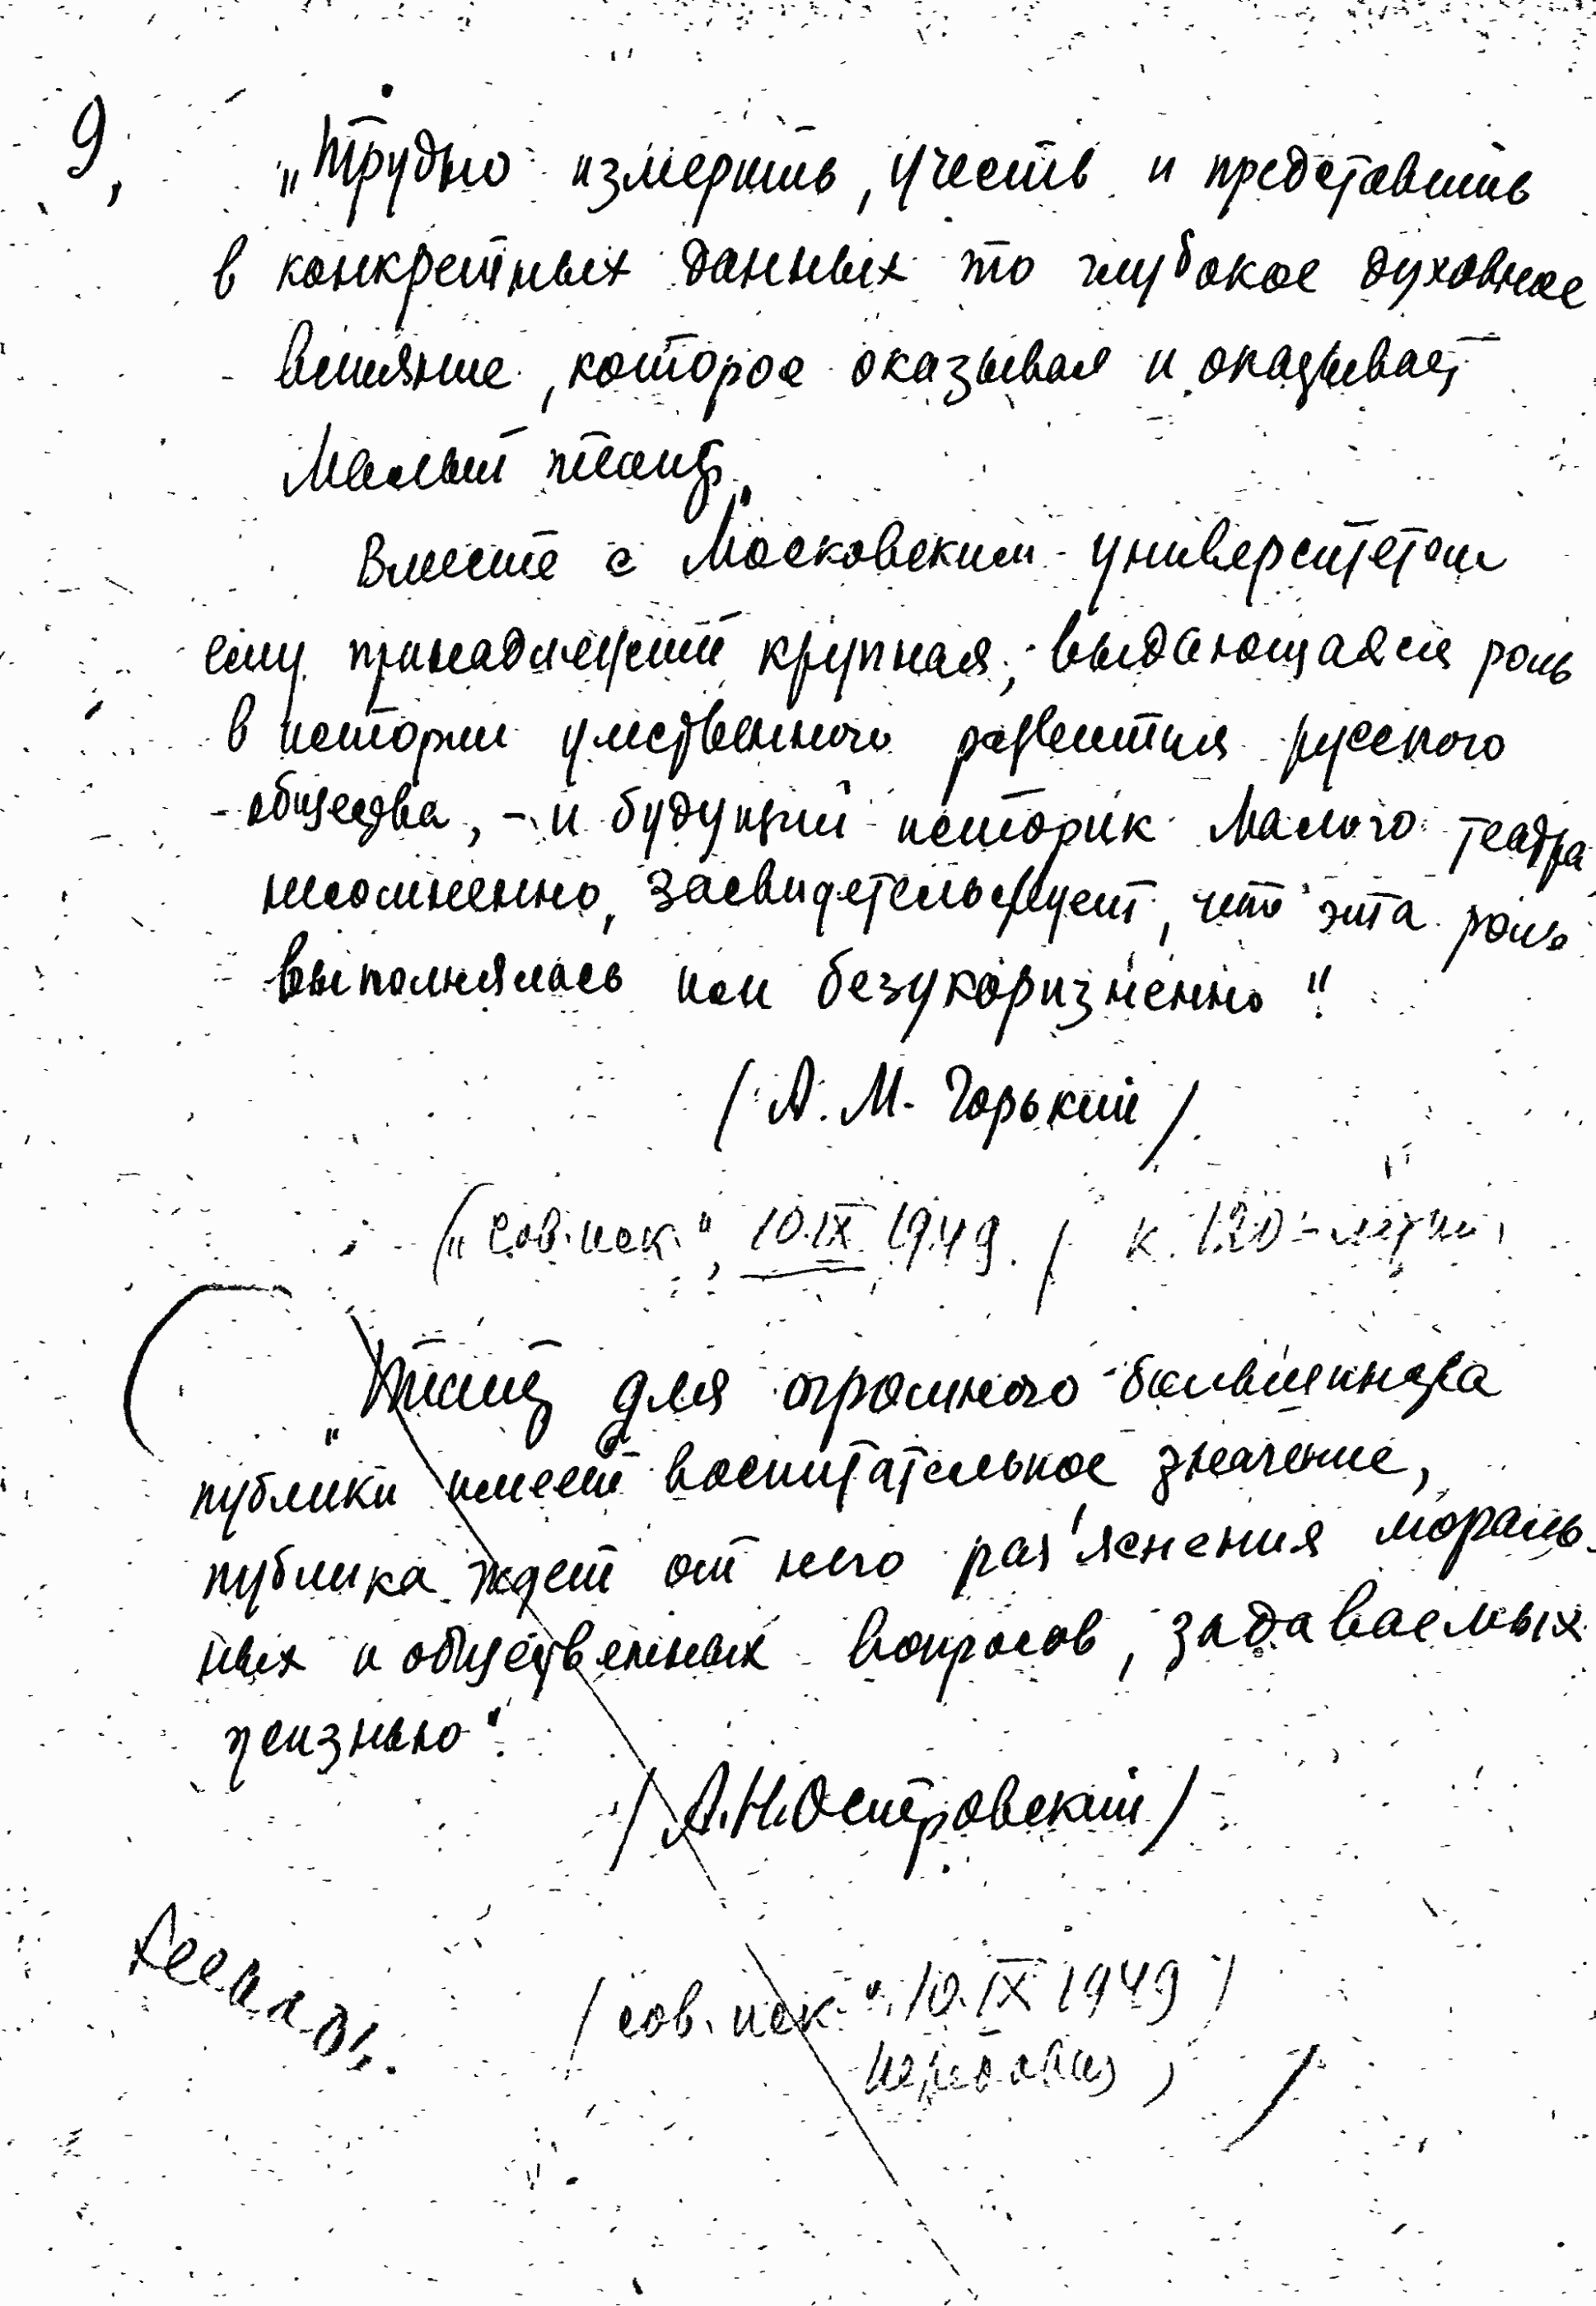 9,
„Трудно измерить, учесть и представить
в конкретных данных то глубокое духовное
влияние, которое оказывал и оказывает
Малый театр.
Вместе с Московским университетом
ему принадлежит крупная, выдающаяся роль
в истории умственного развития русского
общества, - и будущий историк Малого театра,
несомненно, засвидетельствует, что эта роль
выполнялась им безукоризненно"
/А. М. Горький/.
(„Сов. иск.", 10.IX.1949. / к 120-летию
„Театр для огромного большинства
публики имеет воспитательное значение,
публика ждет от него раз'яснения мораль-
ных и общественных вопросов, задаваемых
жизнью".
/А.Н.Островский/
/сов. иск." 10.IX 1949)